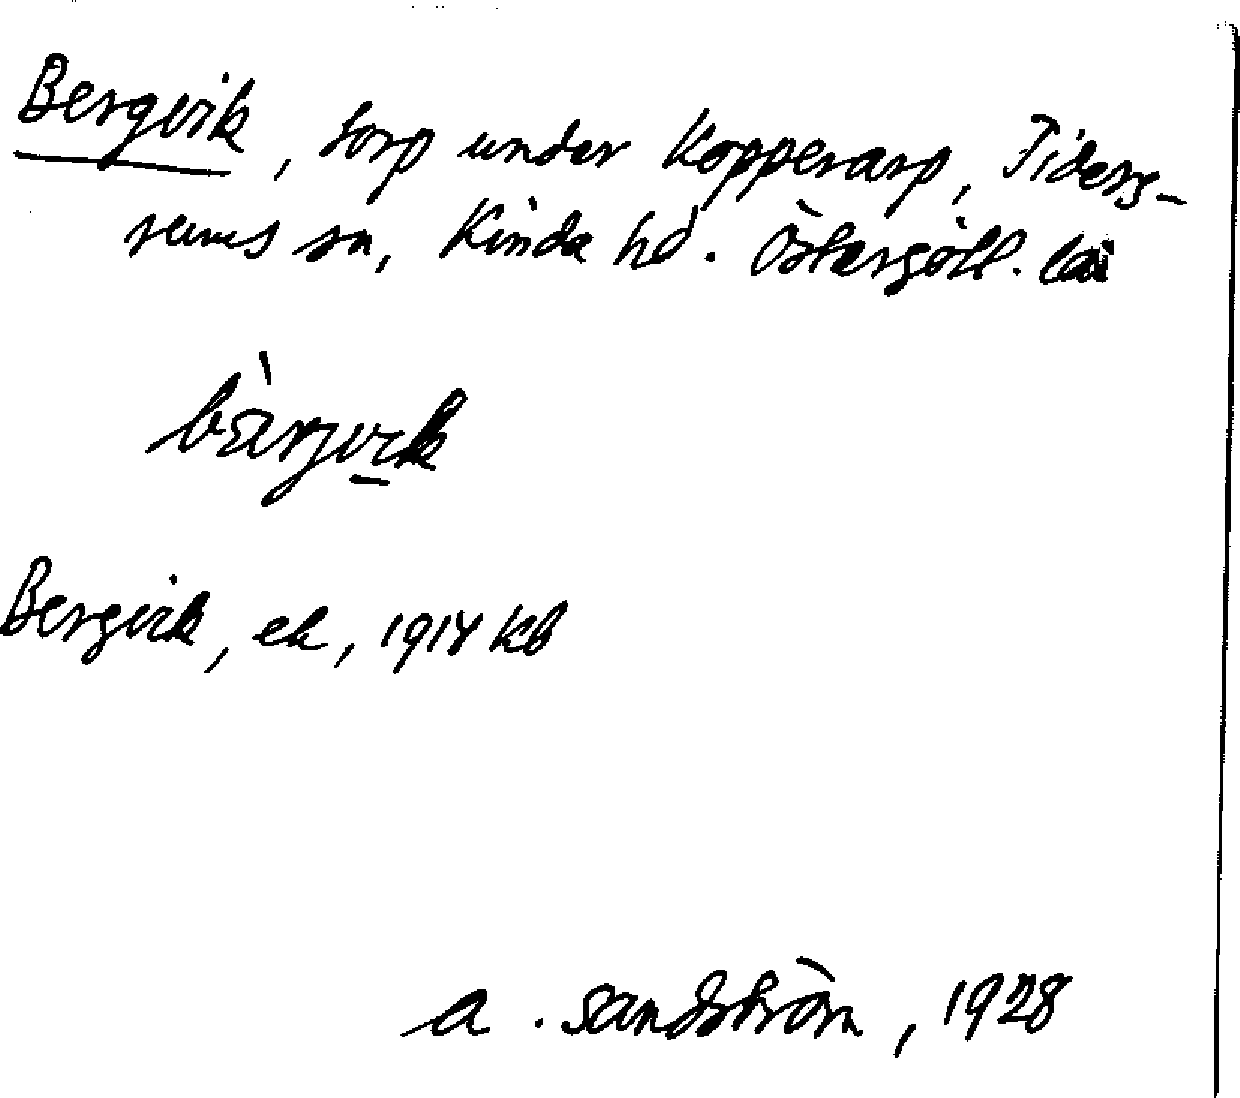 Bergvik, torp under Kopperarp, Tiders-
rums sn, Kinda hd. Östergötl. län
bàrjvik
Bergvik, ek, 1914 Kb
A. Sandström, 1928